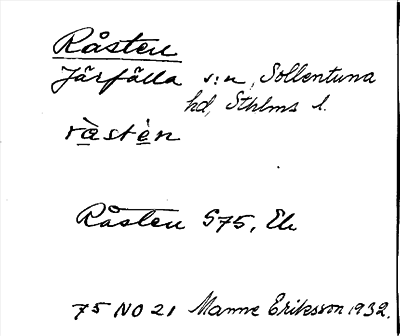 Råsten
Järfälla s:n, Sollentuna
hd, Sthlms l.
rä̀stèn
Råsten S75, Ek
75 NO 21 Manne Eriksson 1932.